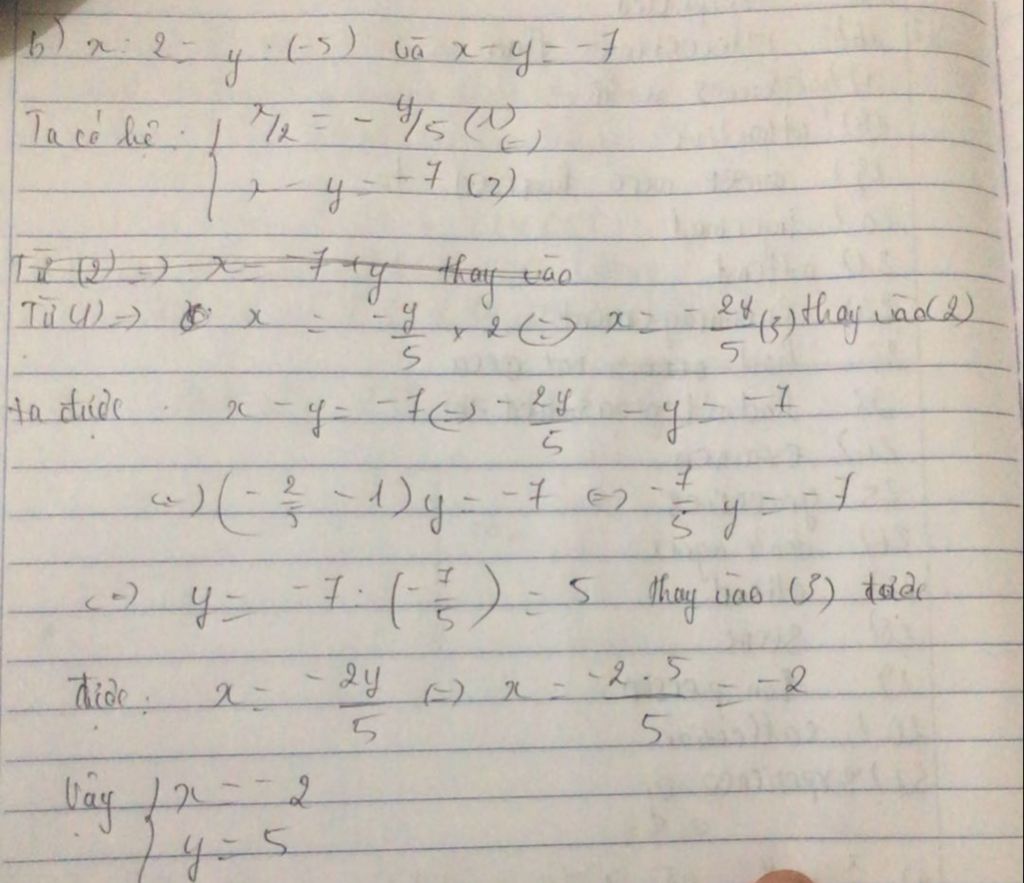 b) x : 2 = y : (-5) và x - y = -7
Ta có hệ : { x/2 = - y/5 (1) (=)
x - y = -7 (2)
Từ (2) =) x = -7 + y thay vào
Từ (1) =) x = -y/5 × 2 (=) x = - 2y/5 (3) thay vào (2)
ta được : x - y = -7 (=) - 2y/5 - y = -7
(=) (- 2/5 - 1) y = -7 (=) - 7/5 y = -7
(=) y = -7 : (- 7/5) = 5 thay vào (3) được
được : x = - 2y/5 (=) x = -2 . 5/5 = -2
Vậy { x = -2
y = 5